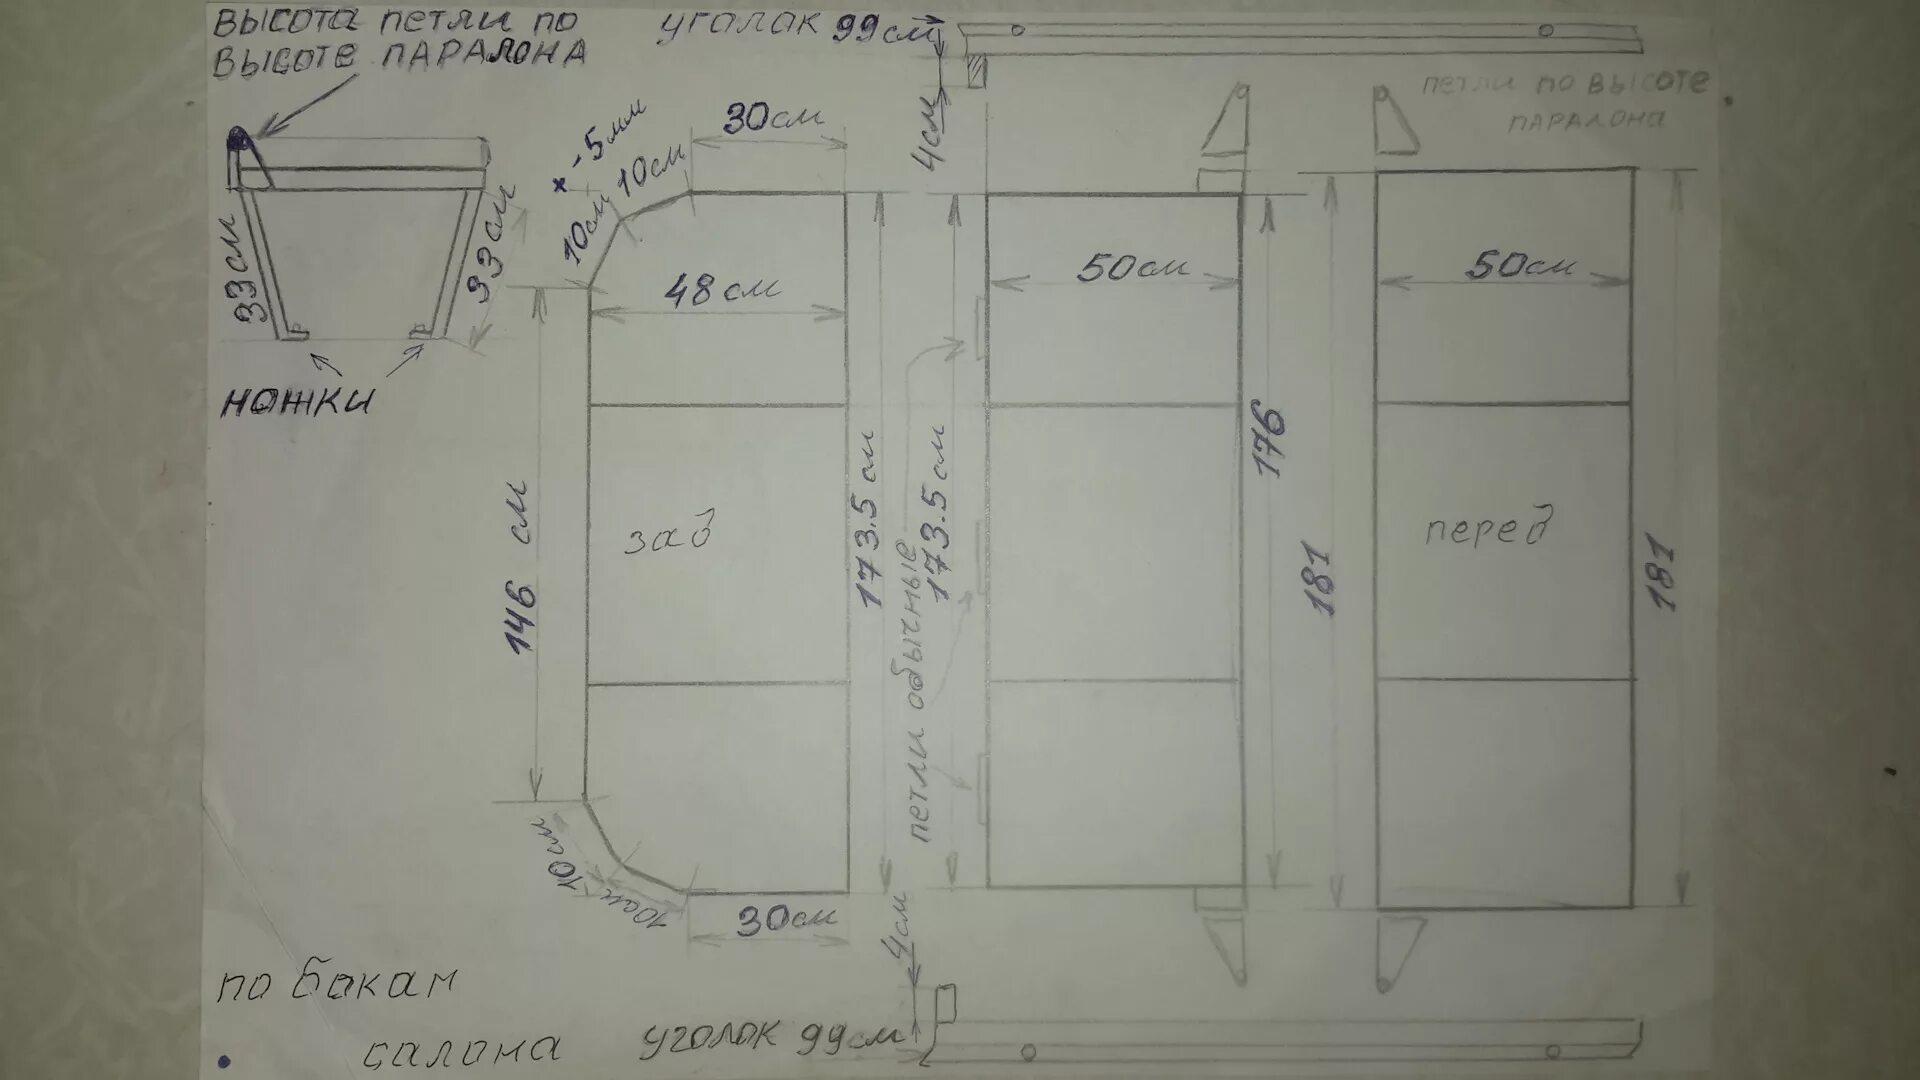 высота петли по
высоте паралона
уголак 99см
4см
петли по высоте
паралона
30см
+-5мм
10см
10см
33см
33см
ножки
48см
50см
50см
146 см
зад
173.5см
173.5см
петли обычные
176
181
перед
181
10см
10см
30см
4см
по бакам
салона
уголок 99см